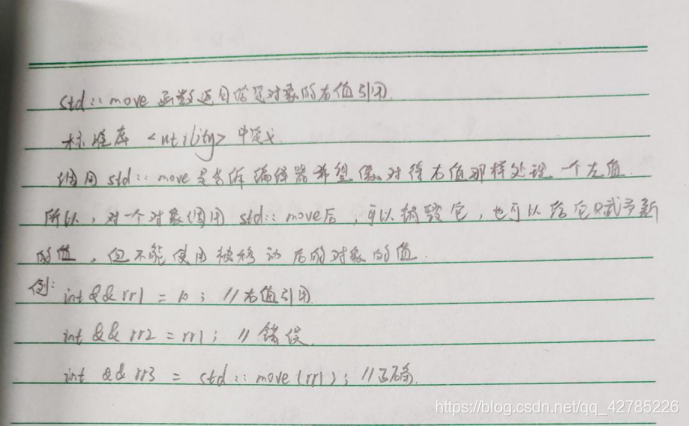 std::move 函数返回给定对象的右值引用.
标准库 <utility> 中定义.
调用 std::move 是告诉编译器希望像对待右值那样处理一个左值.
所以，对一个对象调用 std::move后，可以销毁它，也可以给它赋予新
的值，但不能使用被移动后的对象的值.
例：int && rr1 = 10； //右值引用
int && rr2 = rr1； //错误
int && rr3 = std::move(rr1)； //正确.
https://blog.csdn.net/qq_42785226